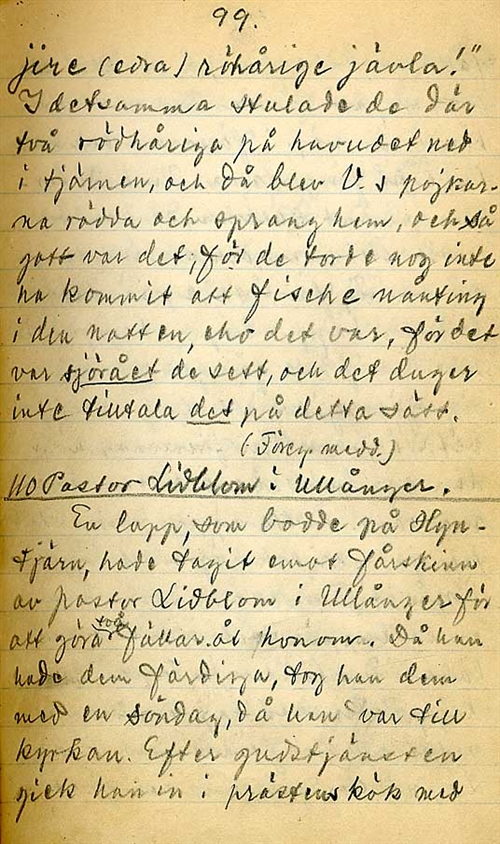 99.
jire (edra) röhårige jävla!"
I detsamma stulade de där
två rödhåriga på huvudet ned
i tjärnen, och då blev V. s pojkar-
na rädda och sprang hem, och så
gott var det, för de torde nog inte
ha kommit att fische nånting
i den natten, eho det var, för det
var sjörået de sett, och det duger
inte tilltala det på detta sätt.
(Föreg. medd.)
110 Pastor Lidblom i Ullånger.
En lapp, som bodde på
tjärn, hade tagit emot fårskinn
av pastor Lidblom i Ullånger för
att göra två fällar åt honom. Då han
hade dem färdiga, tog han dem
med en söndag, då han var till
kyrkan. Efter gudstjänsten
gick han in i prästens kök med